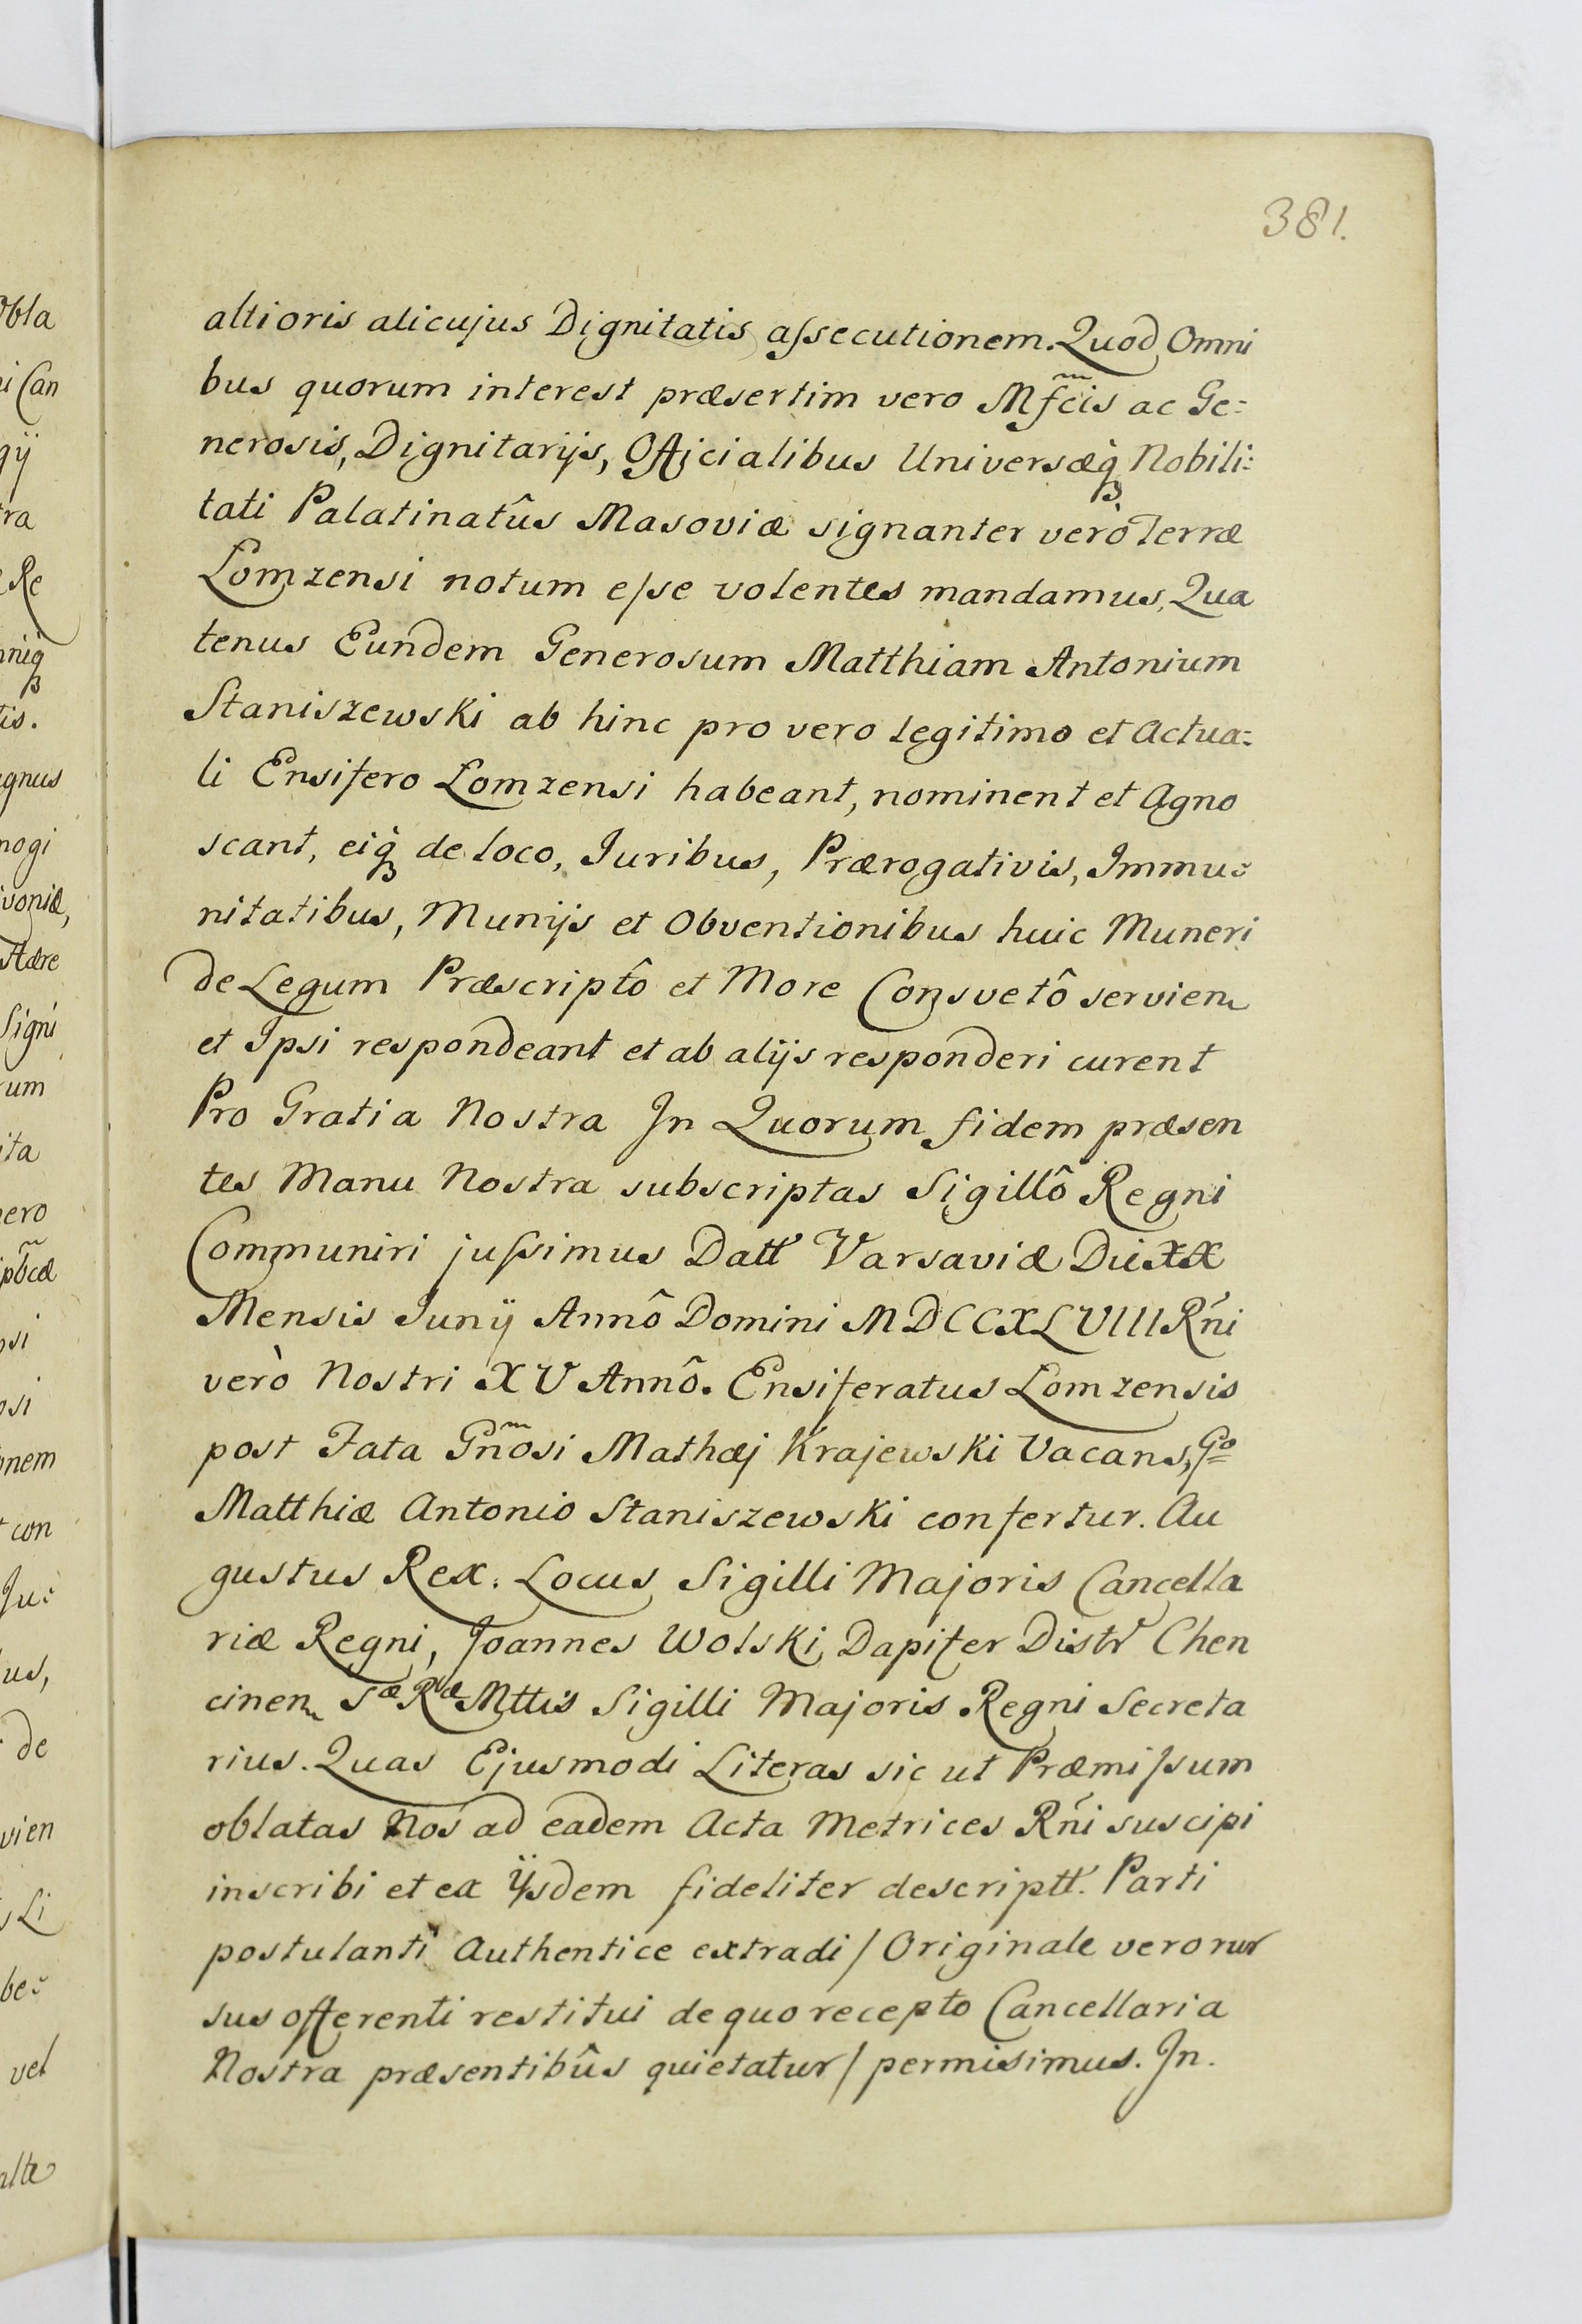 381.
altioris alicujus Dignitatis assecutionem. Quod Omni
bus quorum interest præsertim vero Mfcis ac Ge=
nerosis, Dignitarijs, Officialibus Universæq Nobili=
tati Palatinatûs Masoviæ signanter verò Terræ
Lomzensi notum esse volentes mandamus, Qua
tenus Eundem Generosum Matthiam Antonium
Staniszewski ab hinc pro vero legitimo et Actua=
li Ensifero Lomzensi habeant, nominent et Agno
scant, eiq de loco, Juribus, Prærogativis, Immu=
nitatibus, Munijs et Obventionibus huic Muneri
de Legum Præscriptô et More Consvetô servien
et Ipsi respondeant et ab alijs responderi curent
Pro Gratia Nostra In Quorum fidem præsen
tes Manu Nostra subscriptas Sigillô Regni
Communiri jussimus Datt Varsaviæ Die XX
Mensis Junij Annô Domini MDCCXLVIII Rńi
verò Nostri XV Annô. Ensiferatus Lomzensis
post Fata Gnosi Mathæj Krajewski Vacans, Go
Matthiæ Antonio Staniszewski confertur. Au
gustus Rex. Locus Sigilli Majoris Cancella
riæ Regni, Joannes Wolski Dapifer Distr Chen
cinen Sæ Ræ Mttis Sigilli Majoris Regni Secreta
rius. Quas Ejusmodi Literas sic ut Præmissum
oblatas Nos ad eadem Acta Metrices Rńi suscipi
inscribi et ex ijsdem fideliter descriptt. Parti
postulanti Authentice extradi / Originale vero rur
sus offerenti restitui de quo recepto Cancellaria
Nostra præsentibûs quietatur / permisimus. In.